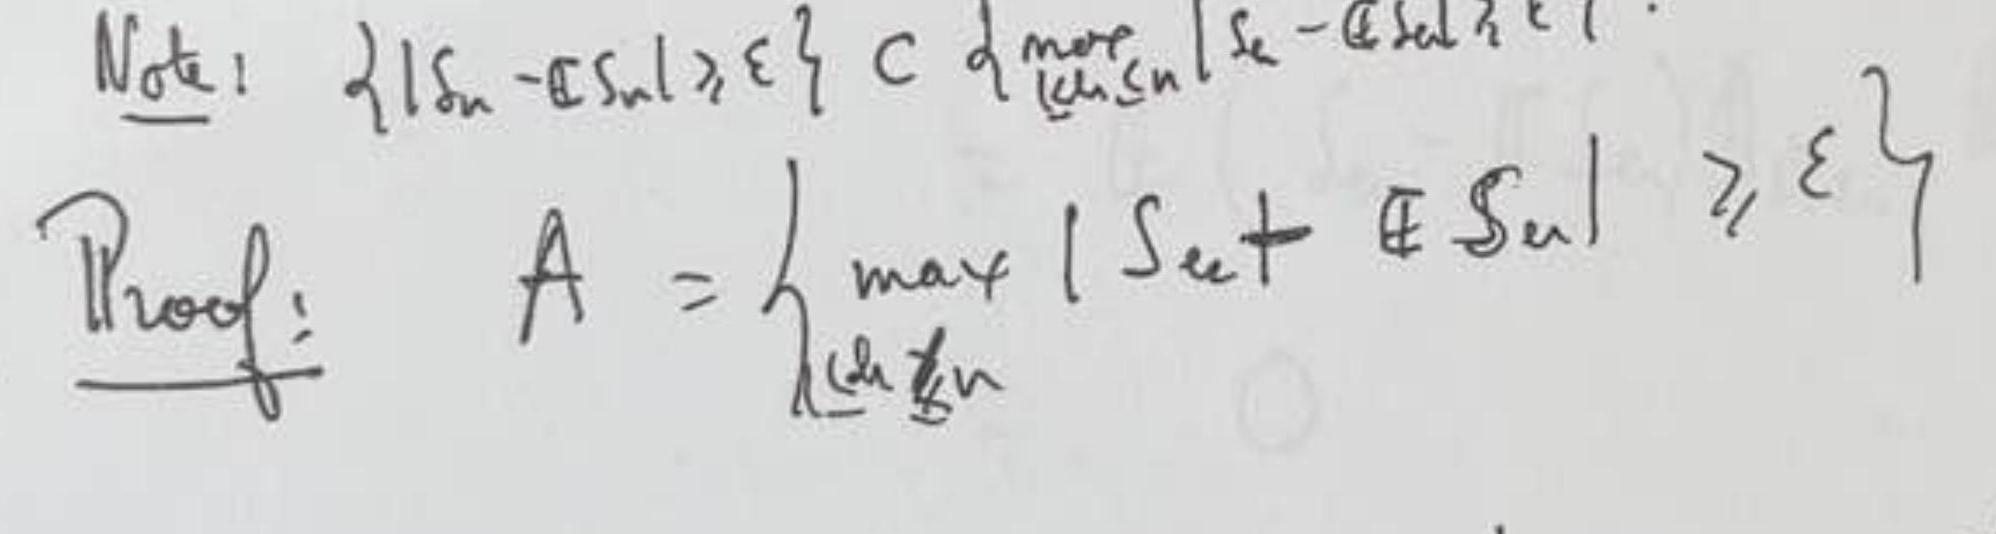 Note: {|Sn - 𝔼Sn| ≥ ε} ⊂ {max 1≤k≤n |Sk - 𝔼Sk| ≥ ε}.
Proof: A = {max 1≤k≤n |Sk + 𝔼Sk| ≥ ε}